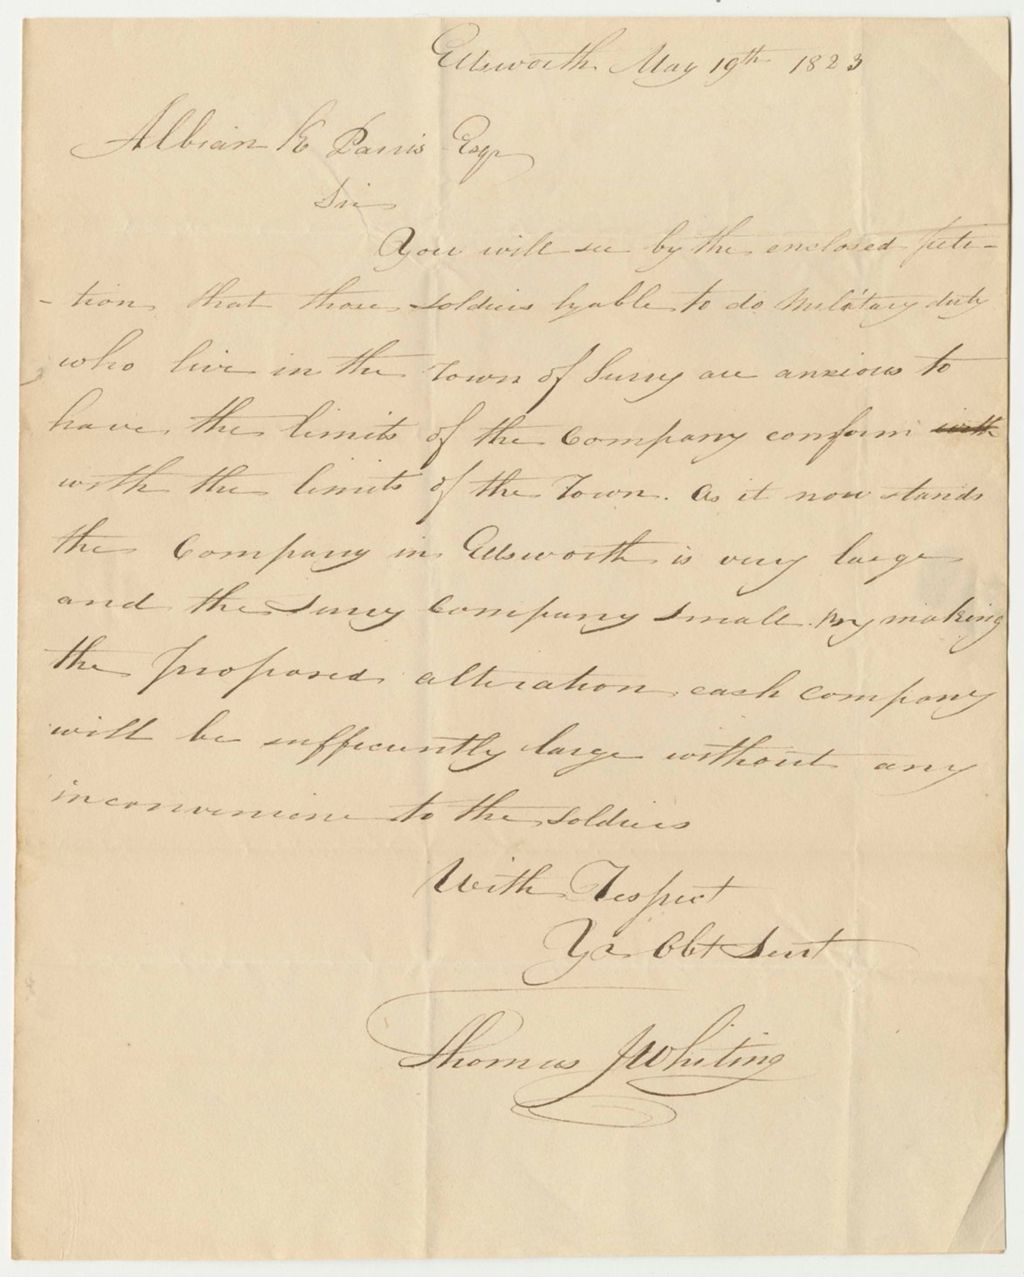 Ellsworth May 19th 1823
Albian K Parris Esqr
Sir
You will see by the enclosed peti-
-tion that those soldiers lyable to do Military duty
who live in the Town of Surry are anxious to
have the limits of the Company conform with
with the limits of the Town. As it now stands
the Company in Ellsworth is very large
and the Surry Company small. By making
the proposed alteration each company
will be sufficiently large without any
inconvenience to the soldiers
With Respect
Yr Obt Sevt
Thomas J Whiting